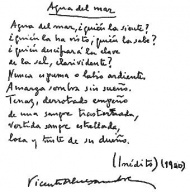 Agua del mar
Agua del mar, ¿quién la siente?
¿quién la ha visto, quién la sabe?
¿quién descifrará la clave
de la sal, clarividente?
Nunca espuma o labio ardiente.
Amarga sombra sin sueño.
Tenaz, derrotado empeño
de una sangre trastornada,
vertida sangre estrellada,
loca y triste de su dueño.
(Inédito) (1980)
Vicente Aleixandre